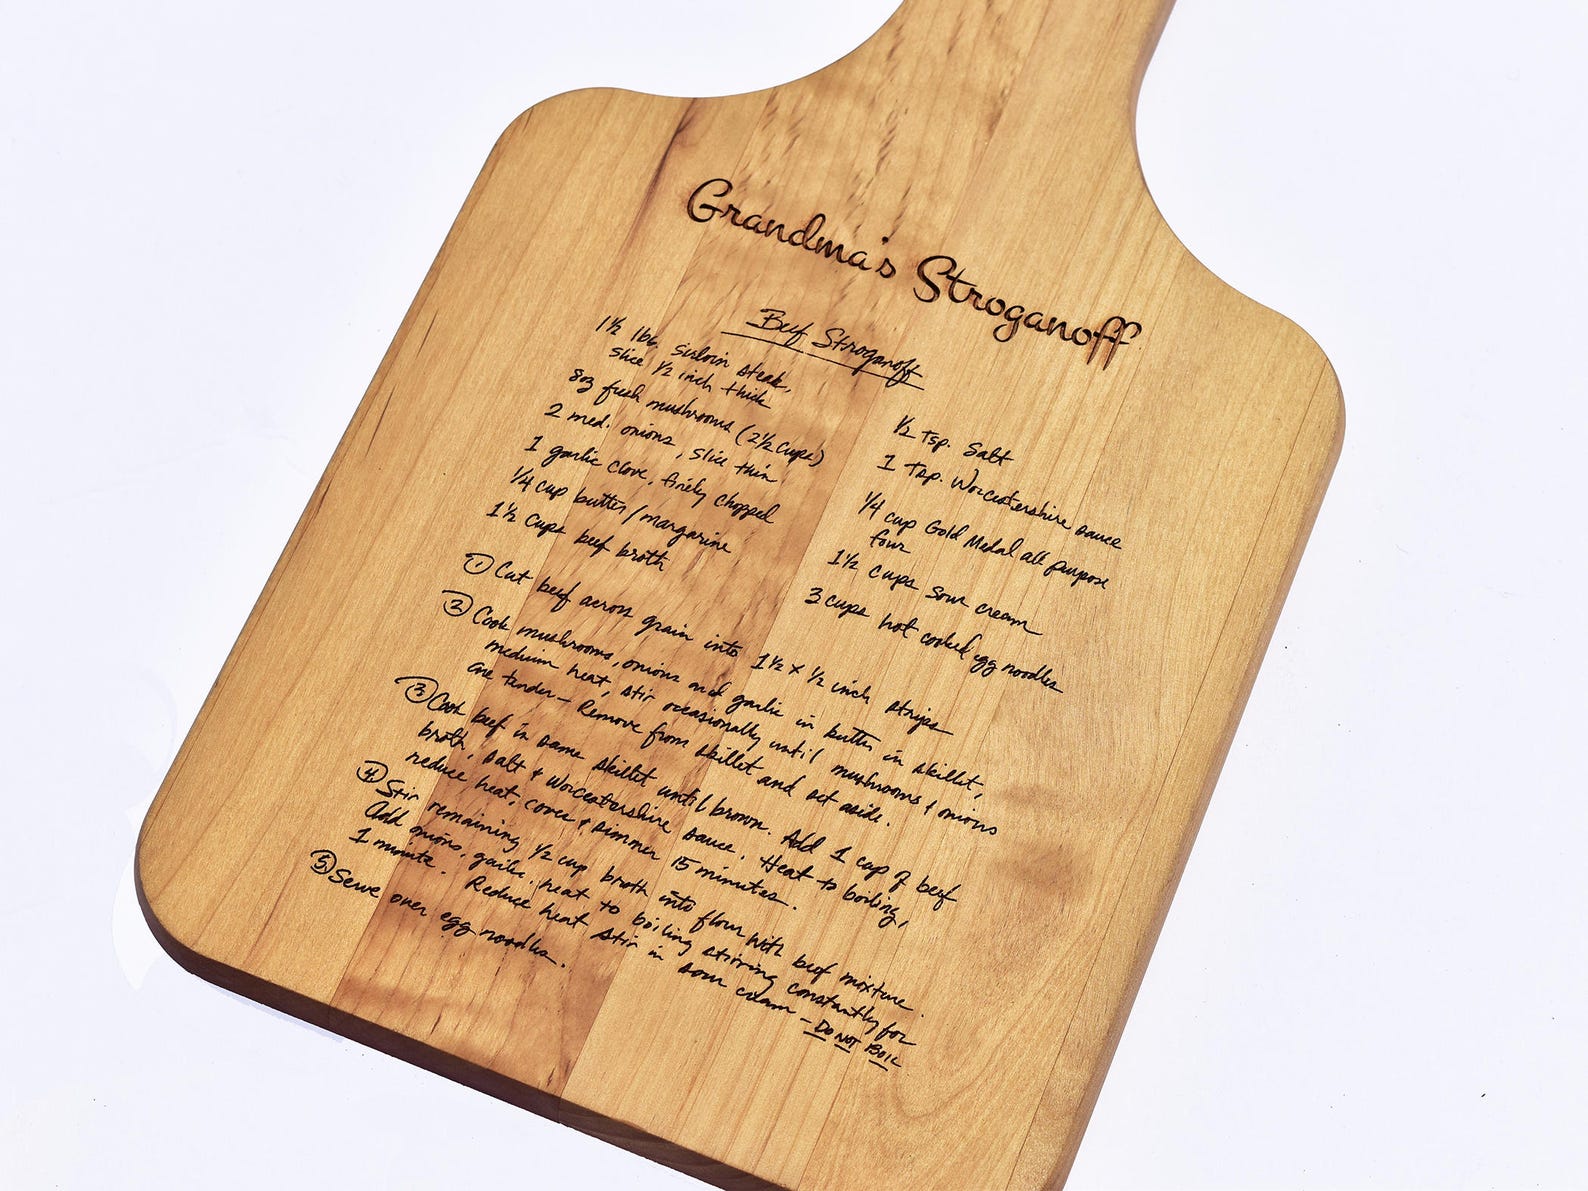 Grandma's Stroganoff
Beef Stroganoff
1½ lbs. sirloin steak,
slice ½ inch thick
8oz fresh mushrooms (2½ cups)
2 med. onions, slice thin
1 garlic clove, finely chopped
¼ cup butter/margarine
1½ cups beef broth
½ Tsp. Salt
1 Tsp. Worcestershire sauce
¼ cup Gold Medal all purpose
flour
1½ cups sour cream
3 cups hot cooked egg noodles
① Cut beef across grain into 1½ x ½ inch strips
② Cook mushrooms, onions and garlic in butter in skillet,
medium heat, stir occasionally until mushrooms & onions
are tender - Remove from skillet and set aside.
③ Cook beef in same skillet until brown. Add 1 cup of beef
broth, salt & Worcestershire sauce. Heat to boiling,
reduce heat, cover & simmer 15 minutes.
④ Stir remaining ½ cup broth into flour with beef mixture.
Add onions, garlic, heat to boiling stirring constantly for
1 minute. Reduce heat stir in sour cream - DO NOT BOIL
⑤ Serve over egg noodles.